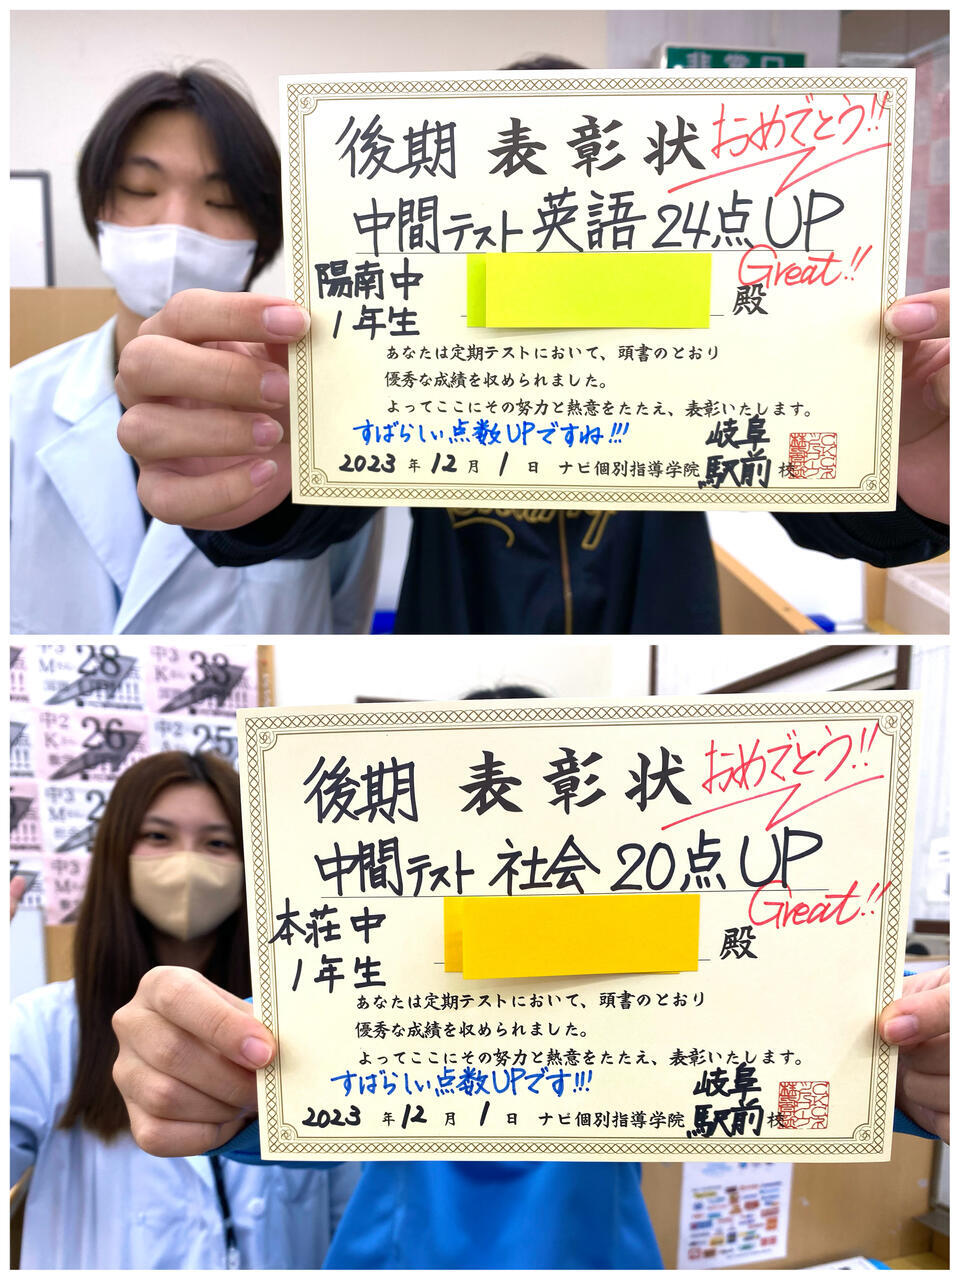 非常口
後期 表彰状
おめでとう!!
中間テスト 英語 24点UP
Great!!
陽南中
1年生
殿
あなたは定期テストにおいて、頭書のとおり
優秀な成績を収められました。
よってここにその努力と熱意をたたえ、表彰いたします。
すばらしい点数UPですね!!!
2023年12月1日 ナビ個別指導学院 岐阜駅前校
中3
28
中3
33
中2
26
25
中3
中3
後期 表彰状
おめでとう!!
中間テスト 社会 20点UP
Great!!
本荘中
1年生
殿
あなたは定期テストにおいて、頭書のとおり
優秀な成績を収められました。
よってここにその努力と熱意をたたえ、表彰いたします。
すばらしい点数UPです!!!
2023年12月1日 ナビ個別指導学院 岐阜駅前校